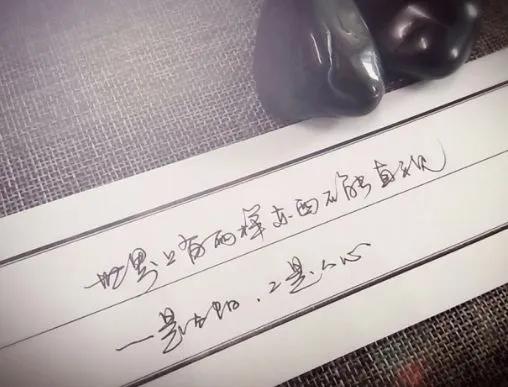 世界上有两样东西不能直视
一是太阳、2是人心